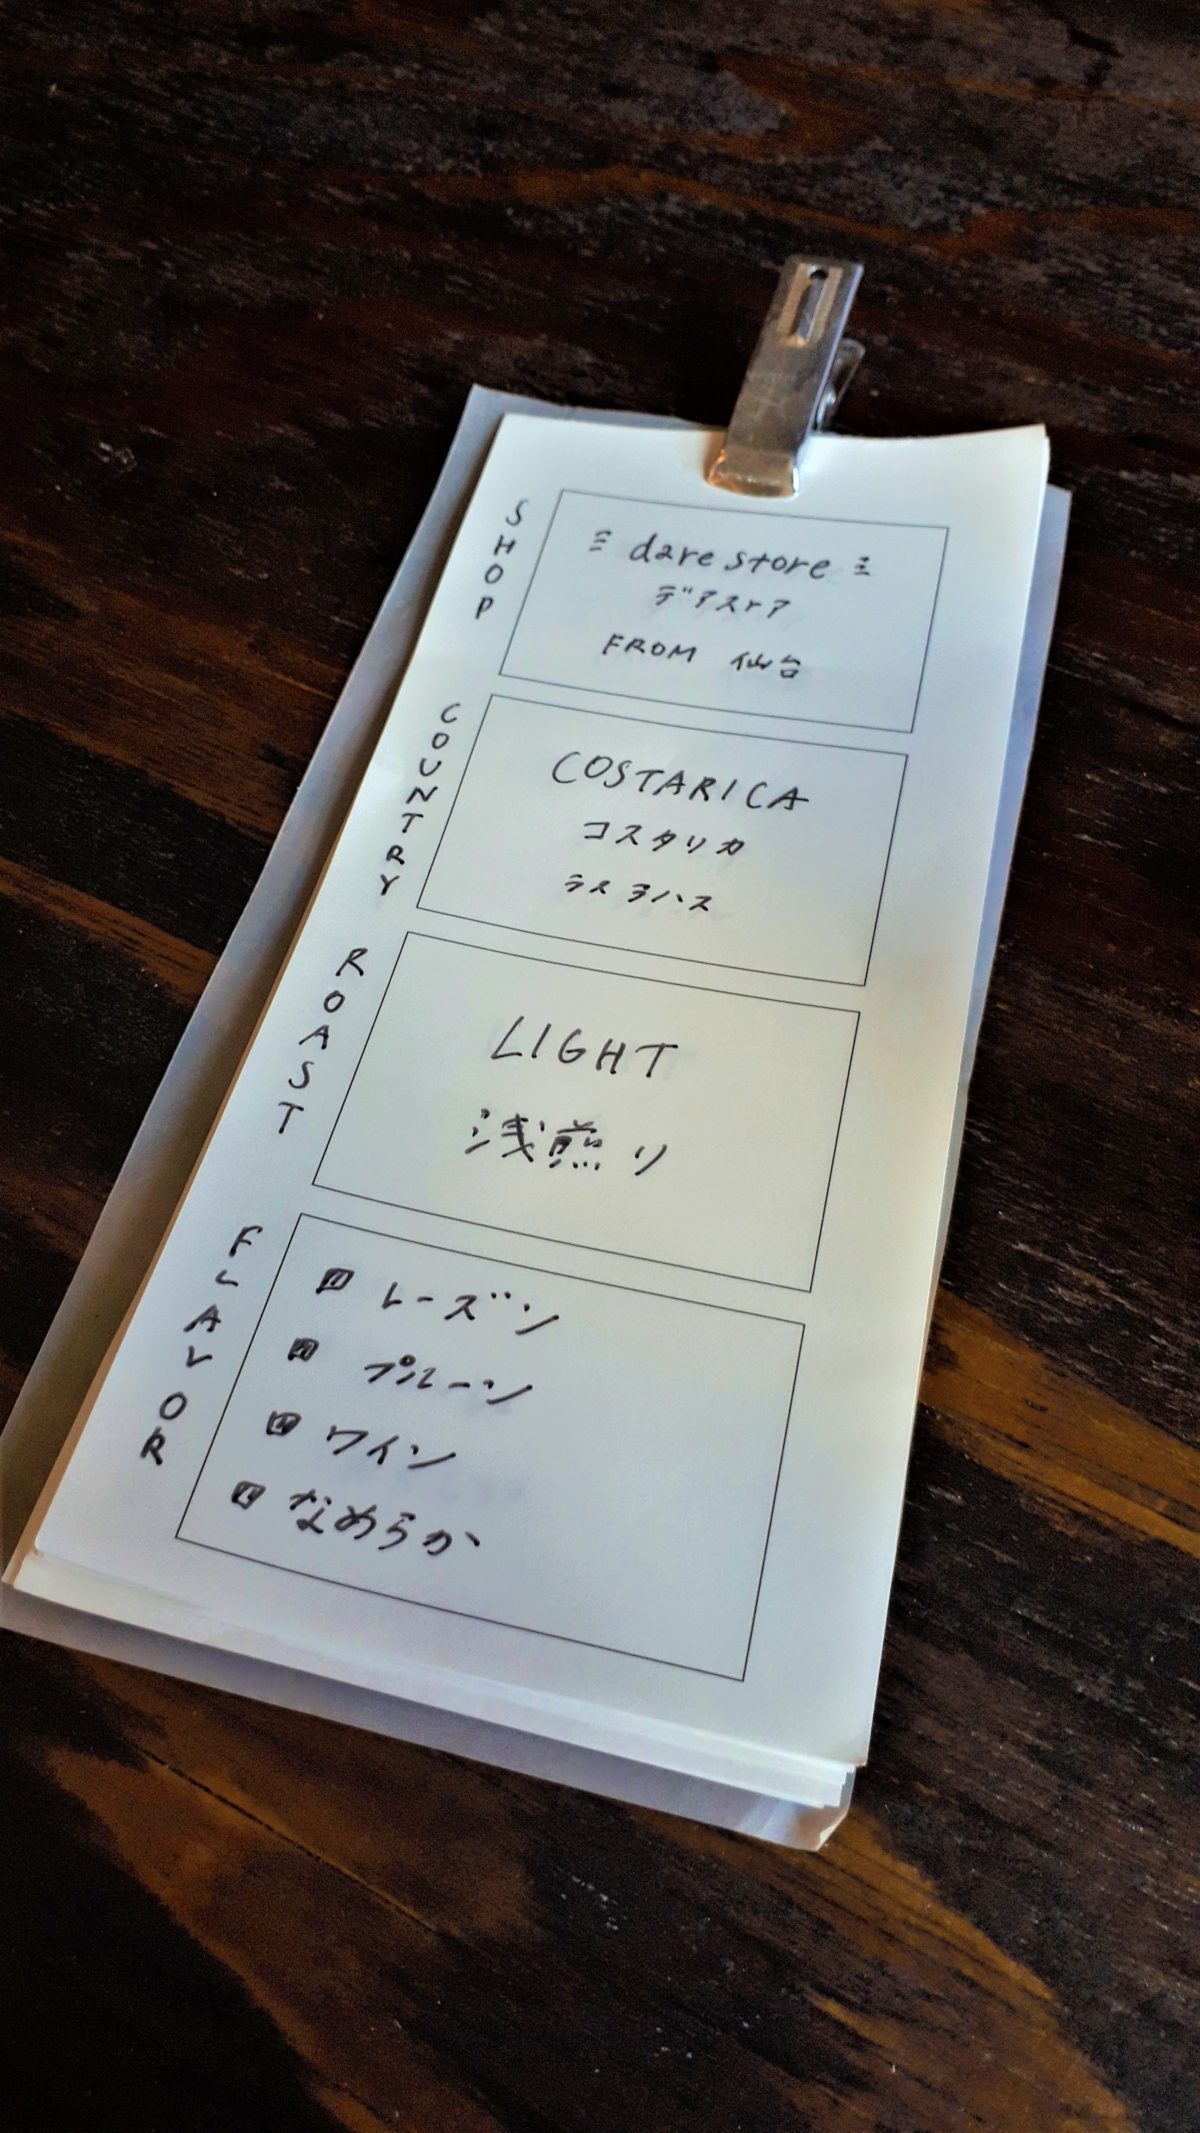 SHOP
dare store
デアストア
FROM 仙台
COUNTRY
COSTARICA
コスタリカ
ラス ヲハス
ROAST
LIGHT
浅煎り
FLAVOR
レーズン
プルーン
ワイン
なめらか